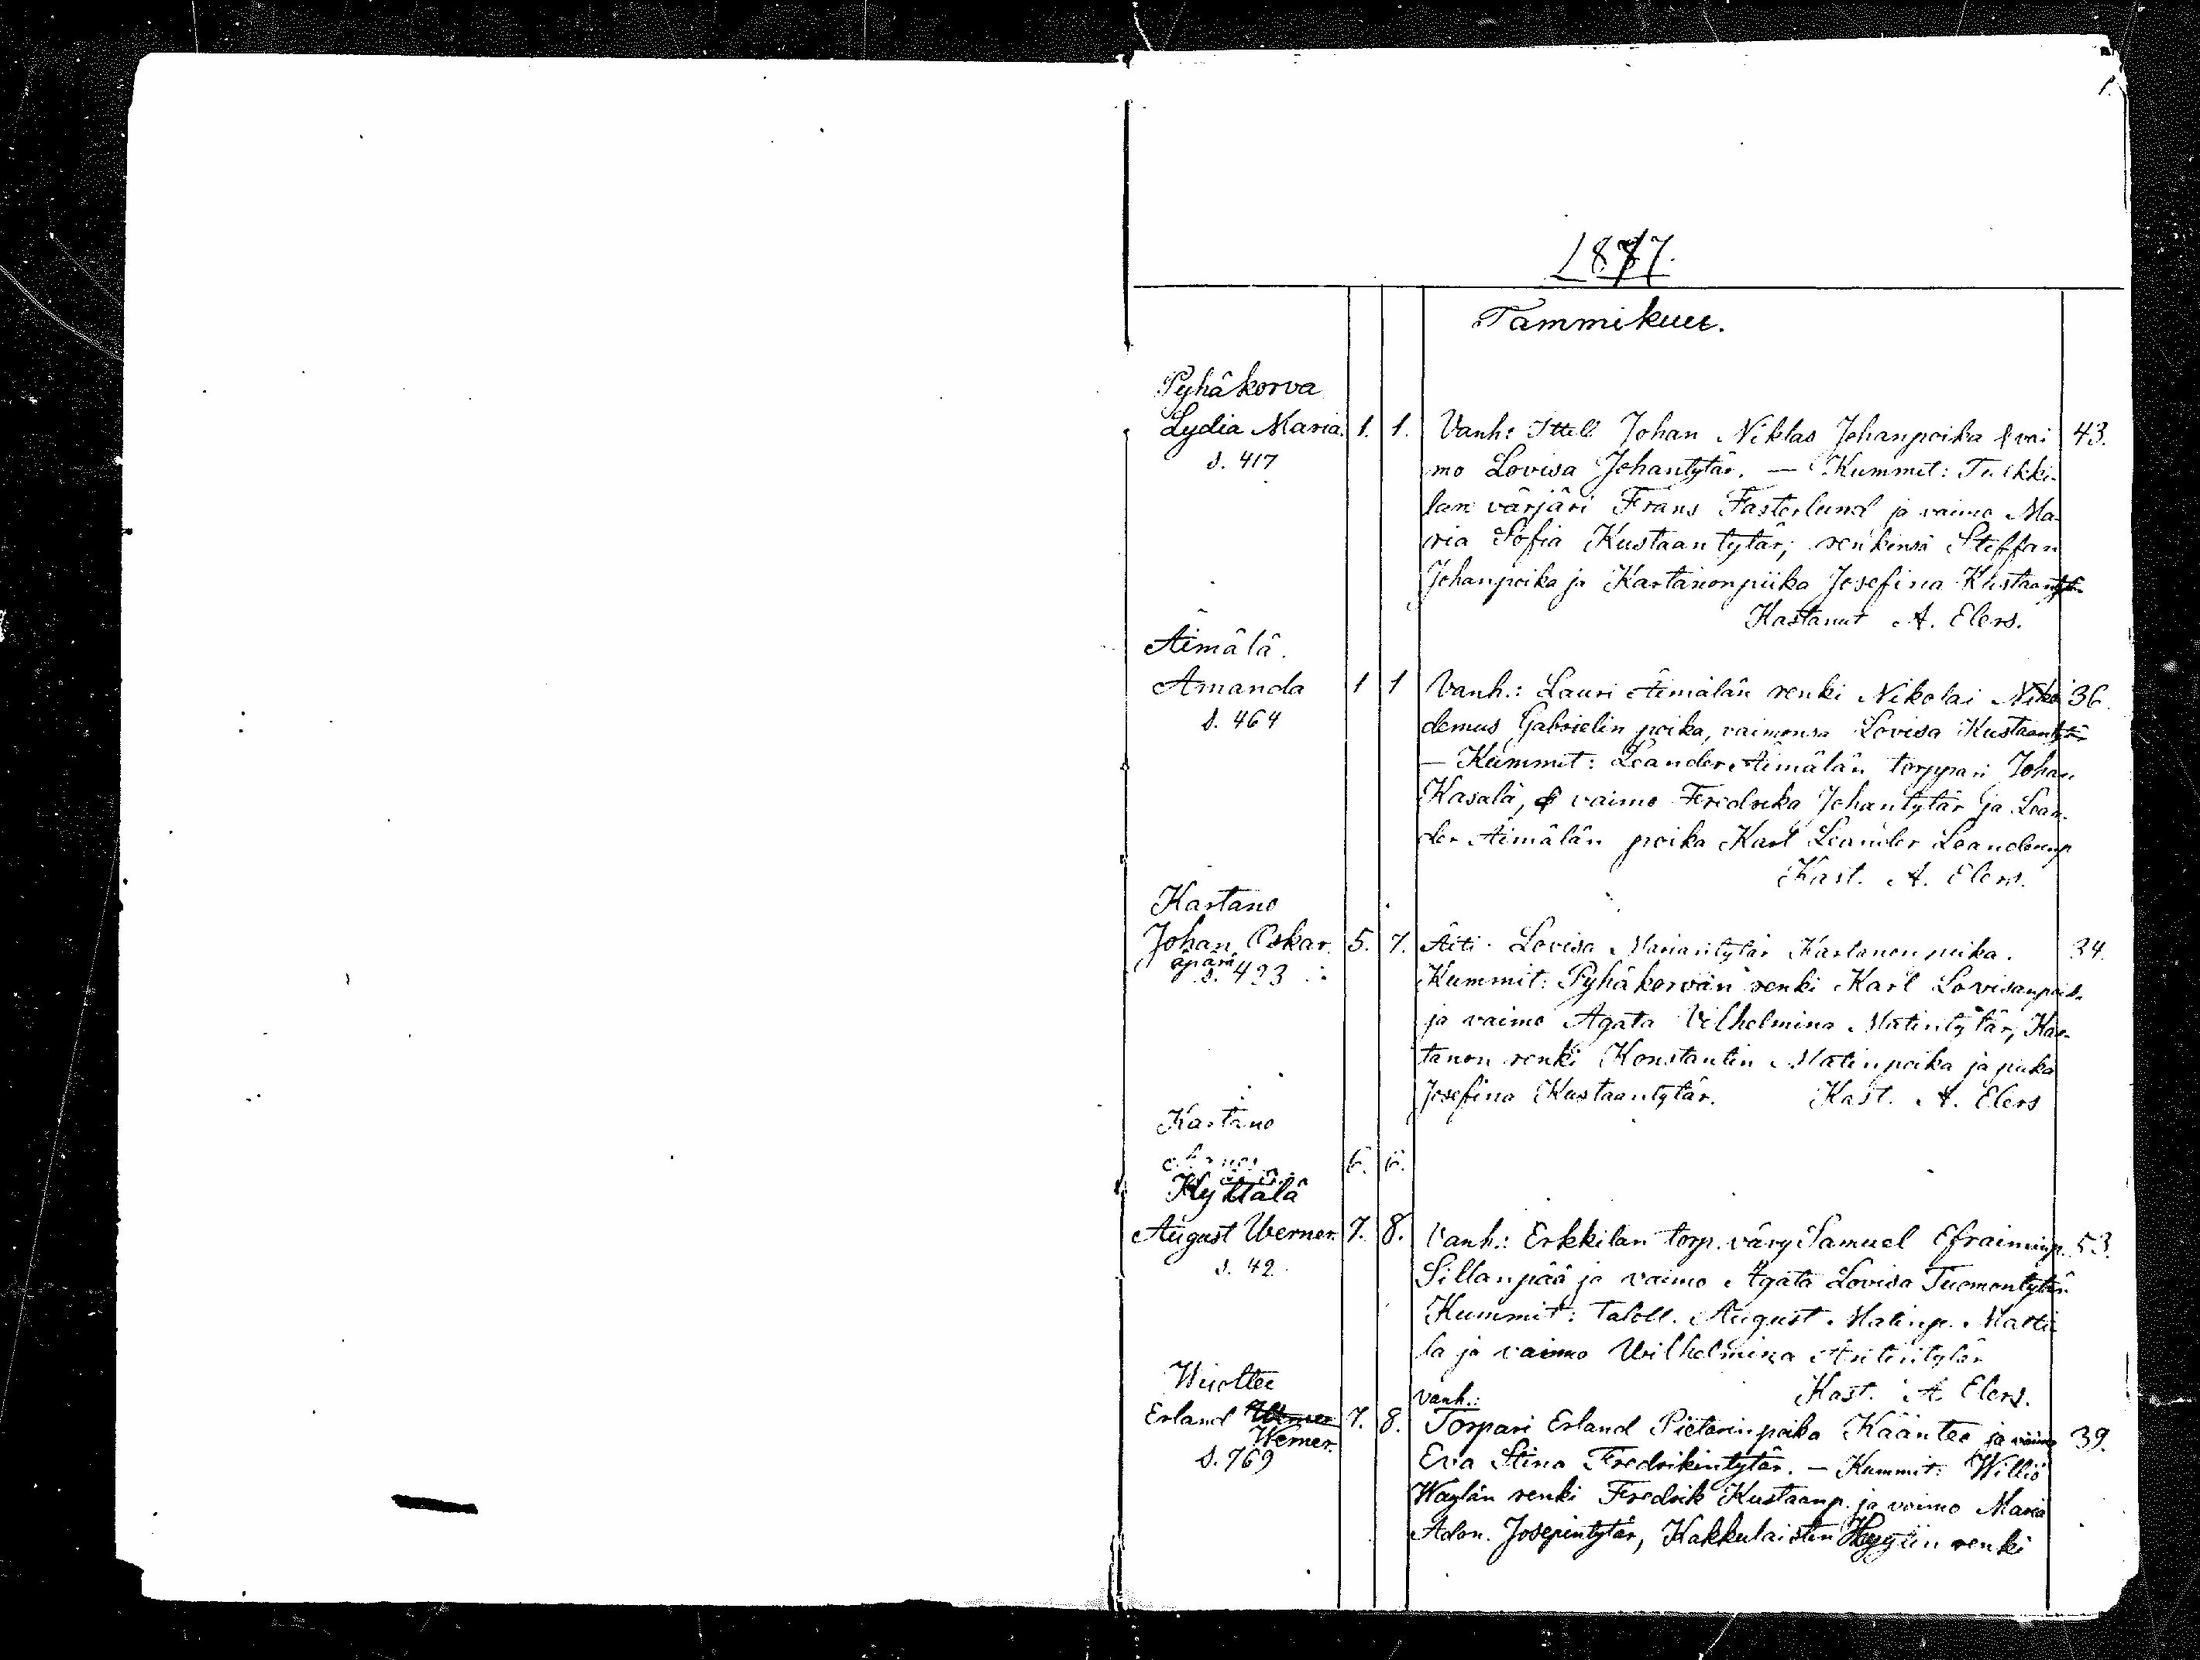 1.
1887.
Tammikuu.
Pyhäkorva
Lydia Maria. 1. 1. Vanh: Ittell. Johan Niklas Johanpoika & vai 43.
s. 417 mo Lovisa Johantytär. — Kummit: Tulkki-
lan värjäri Frans Fasterlund ja vaimo Ma-
ria Sofia Kustaantytär; renkinsä Steffan
Johanpoika ja Kartanonpiika Josefina Kustaantytär
Kastanut A. Elers.
Äimälä.
Amanda 1 1 Vanh.: Lauri Äimälän renki Nikolai Niko 36.
s. 464 demus Gabrielin poika, vaimonsa Lovisa Kustaantytär
— Kummit: Leander Äimälän torppari Johan
Kasala, & vaimo Fredrika Johantytär ja Lean-
der Äimälän poika Karl Leander Leanderinp
Kast. A. Elers.
Kartano
Johan Oskar. 5. 7. Äiti. Lovisa Mariantytär Kartanon piika. 34.
äpärä
s. 423 Kummit: Pyhäkorvan renki Karl Lovisanpoik.
ja vaimo Agata Vilhelmina Matintytär, Kar-
tanon renki Konstantin Matinpoika ja piika
Josefina Kustaantytär. Kast. A. Elers
Kartano
6. 6.
Kyttälä
August Werner. 7. 8. Vanh.: Erkkilan torp. vävy Samuel Efraiminp. 53.
s. 42. Sillanpää ja vaimo Agata Lovisa Tuomontytär.
Kummit: taloll. August Matinp. Matti-
la ja vaimo Wilhelmina Antintytär
Kast. A. Elers.
Wuoltee
vanh.:
Erland Werner 7. 8. Torpari Erland Pietarinpoika Kääntee ja vaimo 39.
Werner.
s. 769 Eva Stina Fredrikintytär. — Kummit: Williö
Waylän renki Fredrik Kustaanp. ja vaimo Maria
Adon. Josepintytär, Kakkulaisten renki